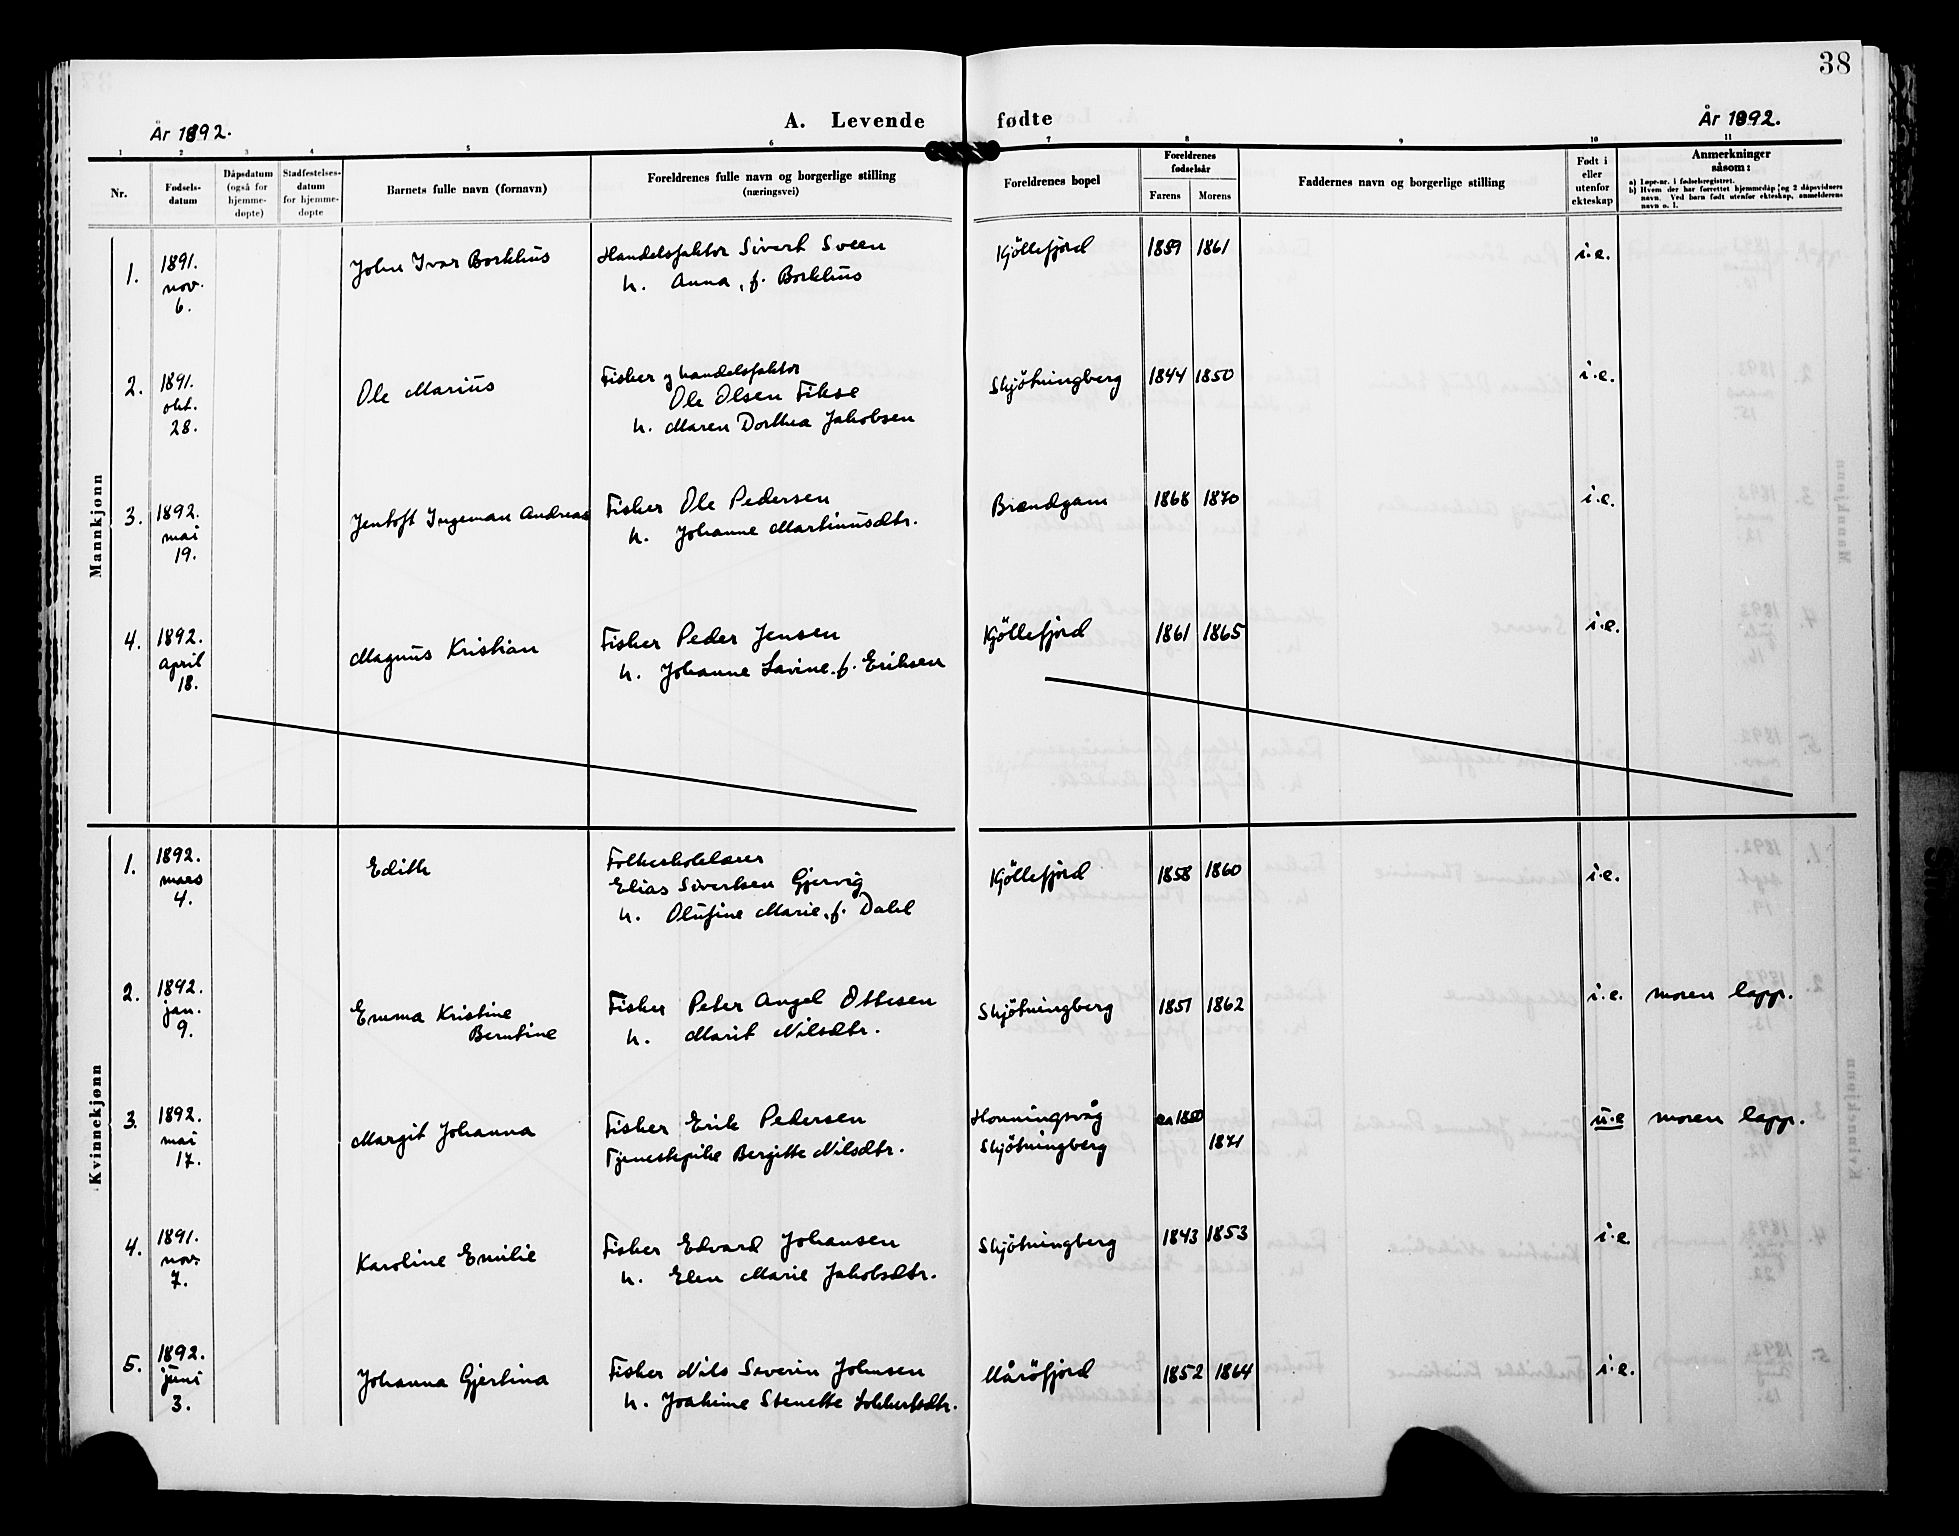 38
A. Levende fødte
År 1892.
År 1892.
1 2 3 4 5 6 7 8 9 10 11
Nr.
Fødsels-
datum
Dåpsdatum
(også for
hjemme-
døpte)
Stadfestelses-
datum
for hjemme-
døpte
Barnets fulle navn (fornavn)
Foreldrenes fulle navn og borgerlige stilling
(næringsvei)
Foreldrenes bopel
Foreldrenes
fødselsår
Farens Morens
Faddernes navn og borgerlige stilling
Født i
eller
utenfor
ekteskap
Anmerkninger
såsom:
a) Løpe-nr. i fødselsregistret.
b) Hvem der har forrettet hjemmedåp og 2 dåpsvidners
navn. Ved barn født utenfor ekteskap, anmelderens
navn o. l.
Mannkjønn
1.
1891.
nov.
6.
John Ivar Borkhus
Handelsfaktor Sivert Sveen
h. Anna, f. Borkhus
Kjøllefjord
1859 1861
i.e.
2.
1891.
okt.
28.
Ole Marius
Fisker og handelsfaktor
Ole Olsen Fikse
h. Maren Dorthea Jakobsen
Skjøtningberg
1844 1850
i.e.
3.
1892.
mai
19.
Jentoft Ingeman Andreas
Fisker Ole Pedersen
h. Johanne Martinusdtr.
Brændgam
1868 1870
i.e.
4.
1892.
april
18.
Magnus Kristian
Fisker Peder Jensen
h. Johanne Lavine. f. Eriksen
Kjøllefjord
1861 1865
i.e.
Kvinnekjønn
1.
1892.
mars
4.
Edith
Folkeskolelærer
Elias Sivertsen Gjervig
h. Olufine Marie, f. Dahl
Kjøllefjord
1858 1860
i.e.
2.
1892.
jan.
9.
Emma Kristine
Berntine
Fisker Peter Angel Ottesen
h. Marit Nilsdtr.
Skjøtningberg
1851 1862
i.e.
moren lapp.
3.
1892.
mai
17.
Margit Johanna
Fisker Erik Pedersen
Tjenestepike Bergitte Nilsdtr.
Honningsvåg
Skjøtningberg
ca 1850
1871
u.e
moren lapp.
4.
1891.
nov.
7.
Karoline Emilie
Fisker Edvard Johansen
h. Elen Marie Jakobsdtr.
Skjøtningberg
1843 1853
i.e.
5.
1892.
juni
3.
Johanna Gjertina
Fisker Nils Severin Johnsen
h. Joakime Stenette
Mårøfjord
1852 1864
i.e.